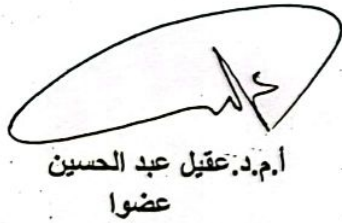 أ.م.د.عقيل عبد الحسين
عضوا